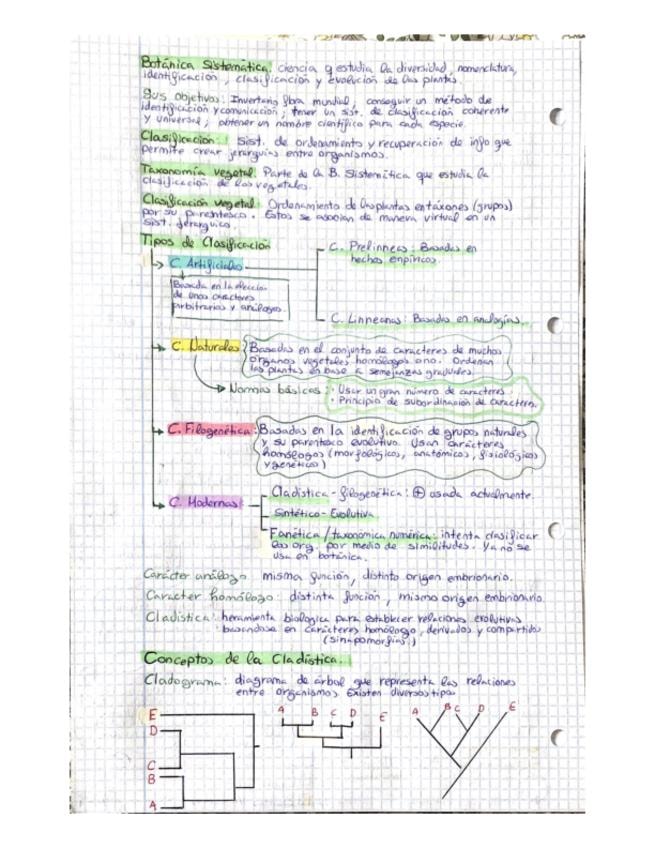 Botánica Sistemática: ciencia q estudia la diversidad, nomenclatura,
identificación, clasificación y evolución de las plantas.
Sus objetivos: Inventario flora mundial, conseguir un método de
identificación y comunicación; tener un sist. de clasificación coherente
y universal; obtener un nombre científico para cada especie.
Clasificación: Sist. de ordenamiento y recuperación de info que
permite crear jerarquías entre organismos.
Taxonomía vegetal: Parte de la B. Sistemática que estudia la
clasificación de los vegetales.
Clasificación vegetal: Ordenamiento de las plantas en táxones (grupos)
por su parentesco. Estos se asocian de manera virtual en un
sist. jerarquico.
Tipos de Clasificación
C. Prelinneas: Basadas en
hechos enpíricos.
C. Artificiales
Basada en la elección
de unos caracteres
arbitrarios y análogos.
C. Linneanas: Basadas en analogías.
C. Naturales: Basadas en el conjunto de caracteres de muchos
organos vegetales homólogos o no. Ordenan
las plantas en base a semejanzas graduales.
Normas básicas: · Usar un gran número de caracteres
· Principio de subordinación de caracteres.
C. Filogenética: Basadas en la identificación de grupos naturales
y su parentesco evolutivo. Usan carácteres
homólogos (morfológicos, anatómicos, fisiológicos
y genéticos)
Cladística - filogenética: ⊕ usada actualmente.
C. Modernas:
Sintético - Evolutiva
Fenética / taxonómica numérica: intenta clasificar
los org. por medio de similitudes. Ya no se
usa en botánica.
Carácter análogo: misma función, distinto origen embrionario.
Caracter homólogo: distinta función, mismo origen embrionario.
Cladística: heramienta biologica para establecer relaciones evolutivas
basandose en carácteres homólogo, derivados y compartidos
(sinapomorfias.)
Conceptos de la Cladística.
Cladograma: diagrama de árbol que representa las relaciones
entre organismos. Existen diversos tipos
E
D
C
B
A
A B C D E
A B C D E